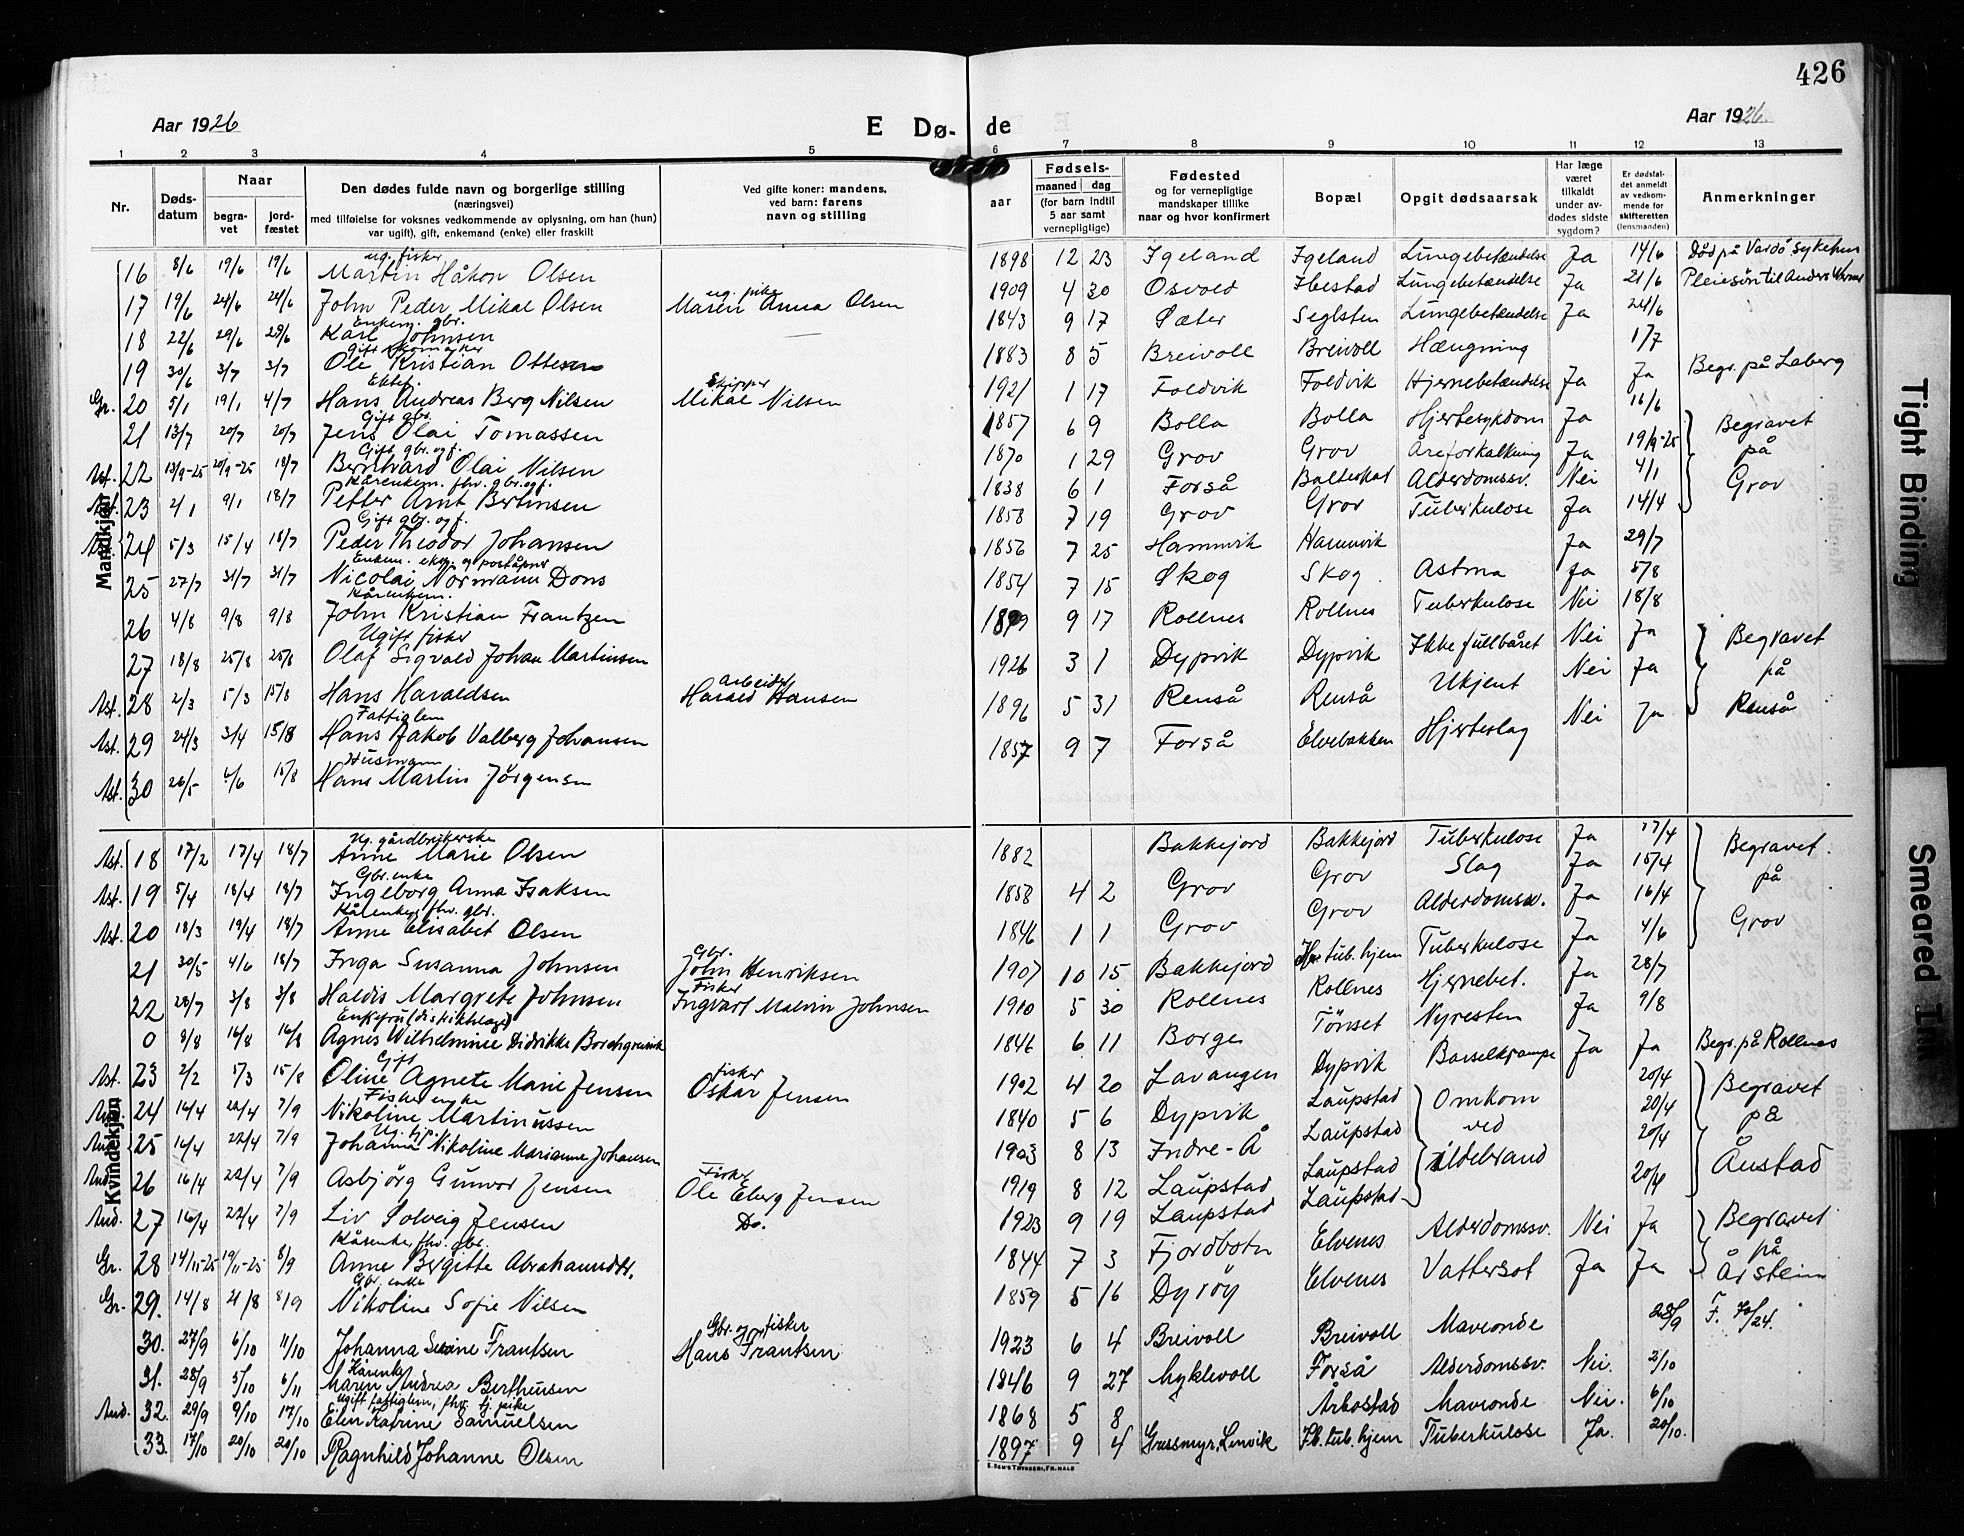 426
Aar 1926
E Dø-
de
Aar 1926
1 2 3 4 5 6 7 8 9 10 11 12 13
Nr.
Døds-
datum
Naar
begra-
vet
jord-
fæstet
Den dødes fulde navn og borgerlige stilling
(næringsvei)
med tilføielse for voksnes vedkommende av oplysning, om han (hun)
var ugift), gift, enkemand (enke) eller fraskilt
Ved gifte koner: mandens,
ved barn: farens
navn og stilling
Fødsels-
aar
maaned dag
(for barn indtil
5 aar samt
vernepligtige)
Fødested
og for vernepligtige
mandskaper tillike
naar og hvor konfirmert
Bopæl
Opgit dødsaarsak
Har læge
været
tilkaldt
under av-
dødes sidste
sygdom?
Er dødsfal-
det anmeldt
av vedkom-
mende for
skifteretten
(lensmanden)
Anmerkninger
Mandkjøn
ug. fisker
16 8/6 19/6 19/6 Martin Håkon Olsen 1898 12 23 Igeland Igeland Lungebetændelse Ja 14/6 Død på Vardø sykehus
ug. pike
17 19/6 24/6 24/6 John Peder Mikal Olsen Maren Anna Olsen 1909 4 30 Osvold Ibestad Lungebetændelse Ja 21/6 Pleiesøn til Anders
Enkem. gbr.
18 22/6 29/6 29/6 Karl Johnsen 1843 9 17 Sæter Seglsten Lungebetændelse Ja 24/6
Gift skomaker
19 30/6 3/7 3/7 Ole Kristian Ottesen 1883 8 5 Breivoll Breivoll Hængning 1/7
Ektef. Skipper
Gr. 20 5/1 19/1 4/7 Hans Andreas Berg Nilsen Mikal Nilsen 1921 1 17 Foldvik Foldvik Hjernebetændelse Ja Ja Begr. på Laberg
Gift gbr.
21 13/7 20/7 20/7 Jens Olai Tomassen 1857 6 9 Bolla Bolla Hjertesykdom Ja 16/6
Gift gbr. og f.
Ast. 22 13/9-25 20/9-25 18/7 Bernhard Olai Nilsen 1870 1 29 Grov Grov Åreforkalkning Ja 19/9-25 Begravet
Kårenkem. fhv. gbr. og f.
Ast. 23 2/1 9/1 18/7 Petter Arnt Bertinsen 1838 6 1 Forså Balteskar Alderdomssv. Nei 4/1 på
Gift gbr. og f.
Ast. 24 5/3 15/4 18/7 Peder Theodor Johansen 1858 7 19 Grov Grov Tuberkulose Ja 14/4 Grov
Enkem. eksp. og poståpner
25 27/7 31/7 31/7 Nicolai Normann Dons 1856 7 25 Hamnvik Hamnvik Ja 29/7
Kårenkem.
26 4/8 9/8 9/8 John Kristian Frantzen 1854 7 15 Skog Skog Astma Ja 5/8
Ugift fisker
27 18/8 25/8 25/8 Olaf Sigvald Johan Martinsen 1899 9 17 Rollnes Rollnes Tuberkulose Nei 18/8
arbeider
Ast. 28 2/3 5/3 15/8 Hans Haraldsen Harald Hansen 1926 3 1 Dypvik Dypvik Ikke fullbåret Nei Ja Begravet
Fattiglem
Ast. 29 24/3 3/4 15/8 Hans Jakob Valberg Johansen 1896 5 31 Renså Renså Ukjent Nei Ja på
Husmann
Ast. 30 26/5 4/6 15/8 Hans Martin Jörgensen 1857 9 7 Forså Elvebakken Hjerteslag Nei Ja Renså
Kvindekjøn
Ug. gårdbrukerske
Ast. 18 17/2 17/4 18/7 Anne Marie Olsen 1882 Bakkejord Bakkejord Tuberkulose Ja 17/4 Begravet
Gbr. enke
Ast. 19 5/4 18/4 18/7 Ingeborg Anna Isaksen 1858 4 2 Grov Grov Slag Ja 15/4 på
Kårenke fhv. gbr.
Ast. 20 18/3 19/4 18/7 Anne Elisabet Olsen 1846 1 1 Grov Grov Alderdomssv. Ja 16/4 Grov
Gbr.
21 30/5 4/6 18/7 Inga Susanna Johnsen John Henriksen 1907 10 15 Bakkejord tub. hjem Tuberkulose Ja 4/6
Fisker
22 28/7 3/8 3/8 Haldis Margrete Johnsen Ingvart Malvin Johnsen 1910 5 30 Rollnes Rollnes Hjernebet. Ja 28/7
Enkefru (distriktslæge)
0 8/8 16/8 16/8 Agnes Wilhelmine Didrikke Borchgrevink 1846 6 11 Borge Tönset Nyresten Ja 9/8
Gift fisker
Ast. 23 2/2 5/3 15/8 Oline Agnete Marie Jensen Oskar Jensen 1902 4 20 Lavangen Dypvik Barselkrampe Ja Ja Begr. på Rollnes
Fisker enke
And. 24 16/4 22/4 7/9 Nikoline Martinussen 1840 5 6 Dypvik Laupstad Omkom 20/4 Begravet
Ug. tjp.
And. 25 16/4 22/4 7/9 Johanna Nikoline Marianne Johansen 1903 8 13 Indre-Å Laupstad ved 20/4 på
Fisker
And. 26 16/4 22/4 7/9 Asbjörg Gunvor Jensen Ole Eberg Jensen 1919 8 12 Laupstad Laupstad ildebrand 20/4 Ånstad
And. 27 16/4 22/4 7/9 Liv Solveig Jensen Do. 1923 9 19 Laupstad Laupstad 20/4
Kårenke fhv. gbr.
Gr. 28 14/11-25 19/11-25 8/9 Anne Bergitte Abrahamsdtr. 1844 7 3 Fjordbotn Elvenes Alderdomssv. Nei Ja Begravet
Gbr. enke
Gr. 29. 14/8 21/8 8/9 Nikoline Sofie Nilsen 1859 5 16 Dyröy Elvenes Vattersot Ja Ja på Årstein
Gbr. og fisker
30. 27/9 6/10 11/10 Johanna Frantsen Hans Frantsen 1923 6 4 Breivoll Breivoll Maveonde 28/9 F.
Kårenke
31. 28/9 5/10 6/11 Maren Andrea Berthinsen 1846 9 27 Myklevoll Forså Alderdomssv. Nei. 2/10
Ugift fattiglem, fhv. tj. pike
And. 32. 29/9 9/10 17/10 Elen Katrine Samuelsen 1868 5 8 Årbostad Maveonde Nei. 6/10
33. 17/10 20/10 20/10 Ragnhild Johanne Olsen 1897 9 4 Grasmyr, Lenvik Ib. tub. hjem Tuberkulose Ja. 20/10.
E. SEM'S TRYKKERI, FR.HALD
Tight Binding
Smeared Ink